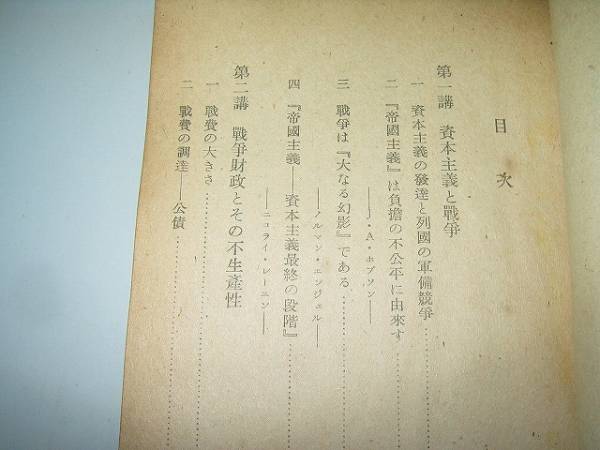 目次
第一講 資本主義と戰爭
一 資本主義の發達と列國の軍備競爭
二 『帝國主義』は負擔の不公平に由來す
――J・A・ホブソン――
三 戰爭は『大なる幻影』である
――ノルマン・エンジェル――
四 『帝國主義――資本主義最終の段階』
――ニコライ・レーニン――
第二講 戰爭財政とその不生產性
一 戰費の大きさ
二 戰費の調達――公債